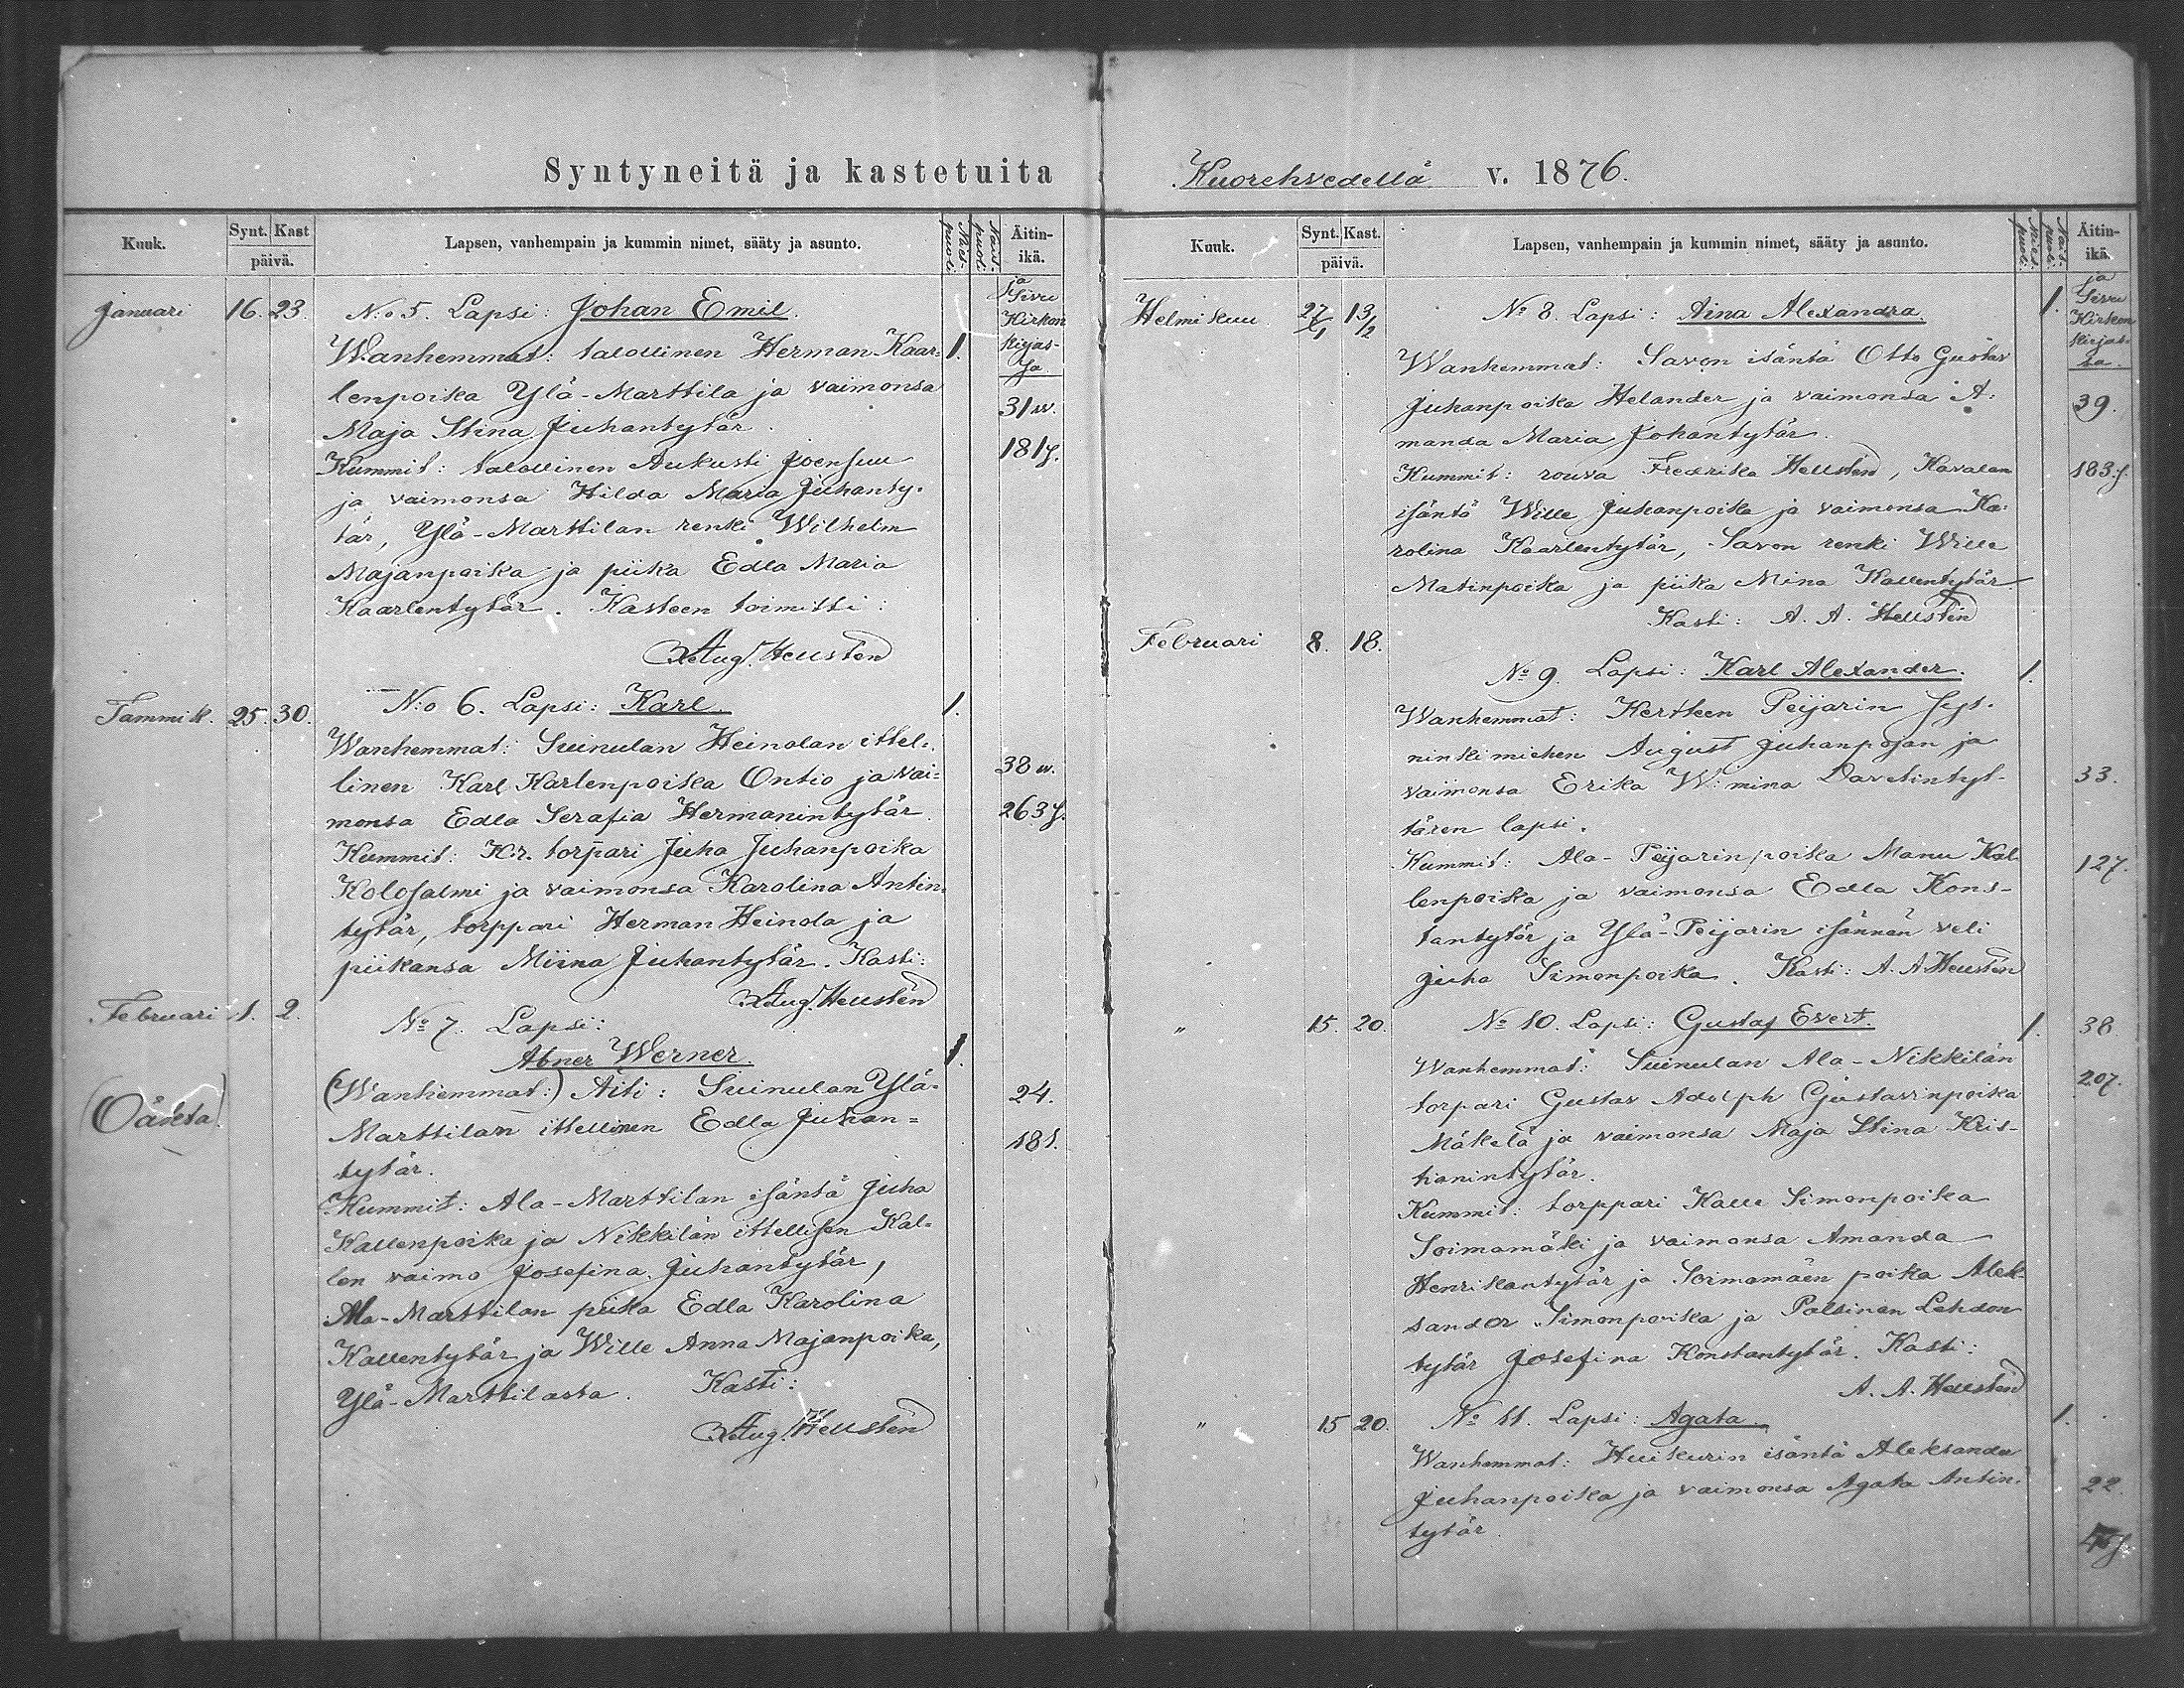 Syntyneitä ja kastetuita
Kuuk. Synt. Kast päivä. Lapsen, vanhempain ja kummin nimet, sääty ja asunto. Mies-puoli. Naist. puoli. Äitin-ikä.
ja Sivu Kirkon kirjas-sa
Januari 16. 23. N:o 5. Lapsi: Johan Emil.
Wanhemmat: talollinen Herman Kaar- 1.
lenpoika Ylä-Marttila ja vaimonsa 31 w.
Maja Stina Juhantytär. 181 s.
Kummit: talollinen Aukusti Joensuu
ja vaimonsa Hilda Maria Juhanty-
tär, Ylä-Marttilan renki Wilhelm
Majanpoika ja piika Edla Maria
Kaarlentytär. Kasteen toimitti:
Aug. Hellstén
Tammik. 25. 30. N:o 6. Lapsi: Karl. 1.
Wanhemmat: Suinulan Heinolan ittel-
linen Karl Karlenpoika Ontio ja vai- 38 w.
monsa Edla Serafia Hermanintytär. 263 s.
Kummit: K:r. torpari Juha Juhanpoika
Kolosalmi ja vaimonsa Karolina Antin-
tytär, torppari Herman Heinola ja
piikansa Miina Juhantytär. Kasti:
Aug. Hellstén
Februari 1. 2. No 7. Lapsi:
Abner Werner. 1.
(Oäkta) (Wanhemmat:) Äiti: Suinulan Ylä- 24.
Marttilan ittellinen Edla Juhan- 181.
tytär.
Kummit: Ala-Marttilan isäntä Juha
Kallenpoika ja Nikkilän ittellisen Kal-
len vaimo Josefina Juhantytär,
Ala-Marttilan piika Edla Karolina
Kallentytär ja Wille Anna Majanpoika,
Ylä-Marttilasta. Kasti:
Aug. Hellstén
Kuorehvedellä v. 1876.
Kuuk. Synt. Kast. päivä. Lapsen, vanhempain ja kummin nimet, sääty ja asunto. Mies-puoli. Nais-puoli. Äitin-ikä.
ja Sivu Kirkon kirjas-sa.
Helmikuu 27/1 13/2 No 8. Lapsi: Aina Alexandra 1.
Wanhemmat: Savon isäntä Otto Gustav
Juhanpoika Helander ja vaimonsa A- 39.
manda Maria Johantytär.
Kummit: rouva Fredrika Hellstén, Kavalan 183 s.
isäntä Wille Juhanpoika ja vaimonsa Ka-
rolina Kaarlentytär, Savon renki Wille
Matinpoika ja piika Mina Kallentytär
Kasti: A. A. Hellstén
Februari 8. 18.
No 9. Lapsi: Karl Alexander. 1.
Wanhemmat: Kertteen Peijarin
ninkimiehen August Juhanpojan ja
vaimonsa Erika W:mina Davetintyt- 33.
tären lapsi.
Kummit: Ala-Peijarin poika Manu Kal- 127.
lenpoika ja vaimonsa Edla Kons-
tantytär ja Ylä-Peijarin isännän veli
Juha Simonpoika. Kasti: A. A. Hellstén
" 15. 20. No 10. Lapsi: Gustaf Evert. 1. 38.
Wanhemmat: Suinulan Ala-Nikkilän
torpari Gustav Adolph Gustavinpoika 207.
Mäkelä ja vaimonsa Maja Stina Kris-
tianintytär.
Kummit: torppari Kalle Simonpoika
Soimamäki ja vaimonsa Amanda
Henrikantytär ja Soimamäen poika Alek-
sander Simonpoika ja Palsinan Lehdon
tytär Josefina Konstantytär. Kasti:
A. A. Hellstén
" 15 20. No 11. Lapsi: Agata. 1.
Wanhemmat: Huikurin isäntä Aleksander
Juhanpoika ja vaimonsa Agata Antin- 22.
tytär.